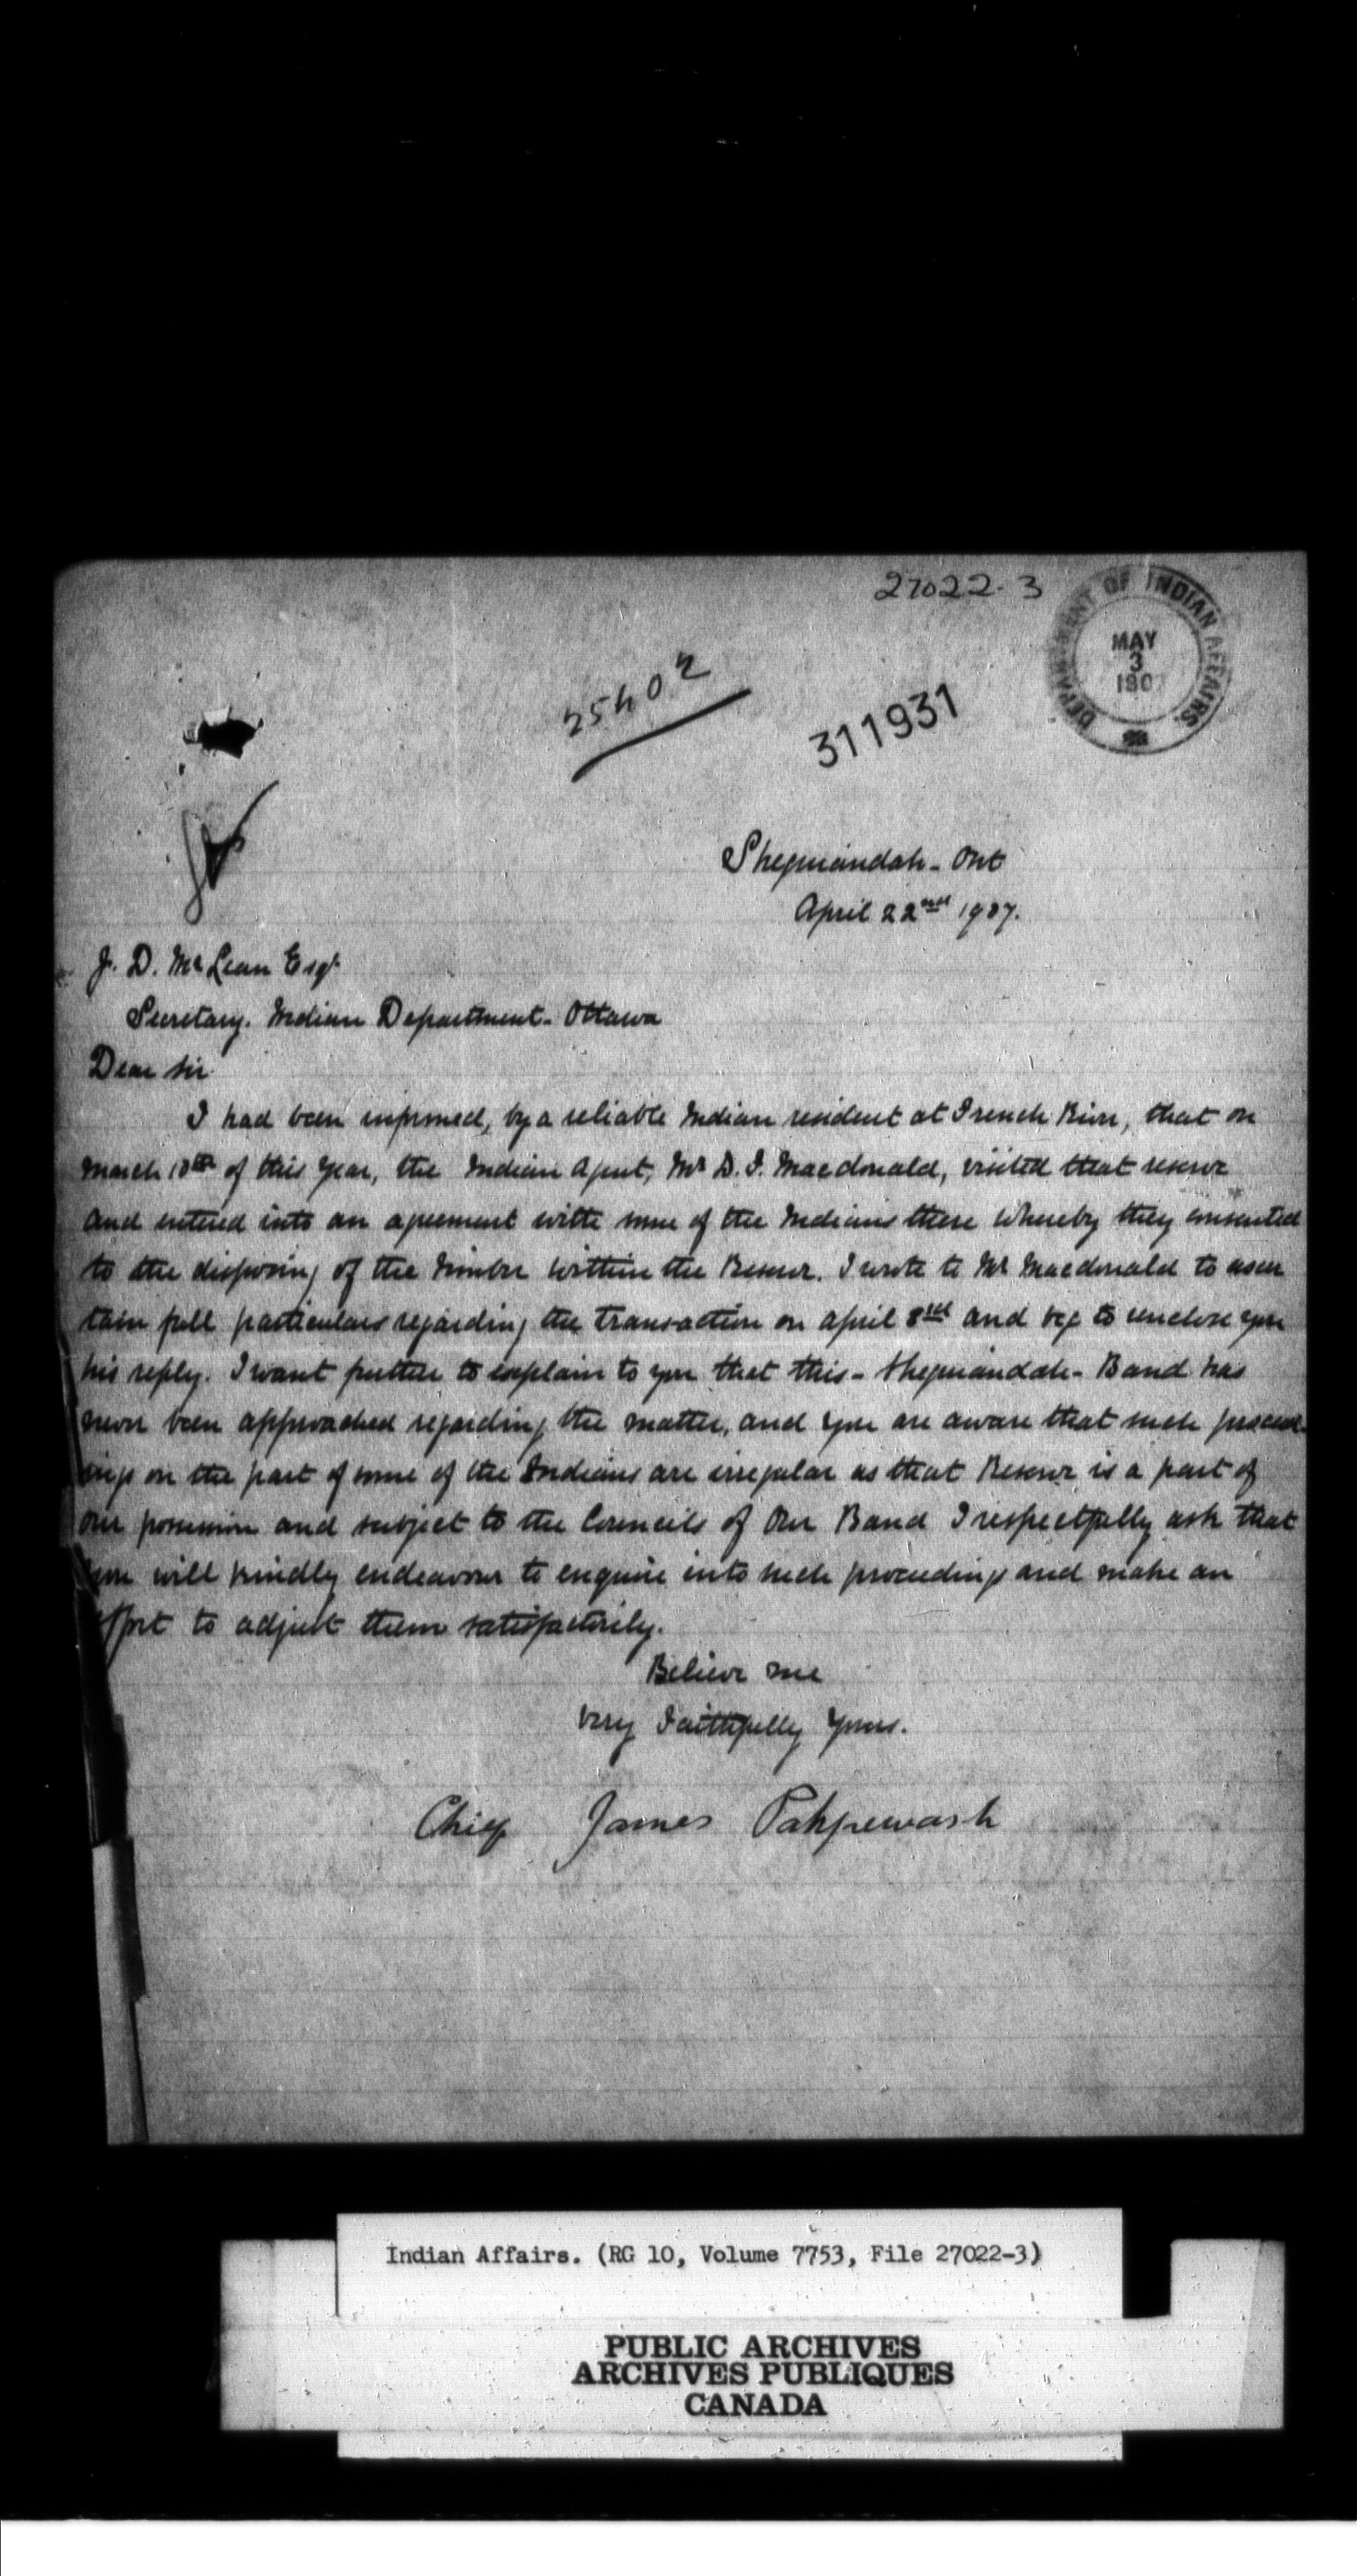 27022-3
DEPARTMENT OF INDIAN AFFAIRS.
MAY
3
1907
25402
311931
Sheguiandah - Ont
April 22nd 1907.
J. D. McLean Esqr
Secretary. Indian Department - Ottawa
Dear Sir
I had been informed, by a reliable Indian resident at French River, that on
March 18th of this year, the Indian Agent, Mr Macdonald, visited that reserve
and entered into an agreement with some of the Indians there whereby they consented
to the disposing of the timber within the Reserve. I wrote to Mr Macdonald to ascer
tain full particulars regarding the transaction on april and beg to enclose you
his reply. I want further to explain to you that this - Sheguiandah - Band has
never been approached regarding the matter, and you are aware that such proceed-
ings on the part of some of the Indians are irregular as that Reserve is a part of
our possession and subject to the Councils of Our Band I respectfully ask that
you will kindly endeavour to enquire into such proceedings and make an
effort to adjust them satisfactorily.
Believe me
Very Faithfully Yours.
Chief James Pahpewash
Indian Affairs. (RG 10, Volume 7753, File 27022-3)
PUBLIC ARCHIVES
ARCHIVES PUBLIQUES
CANADA